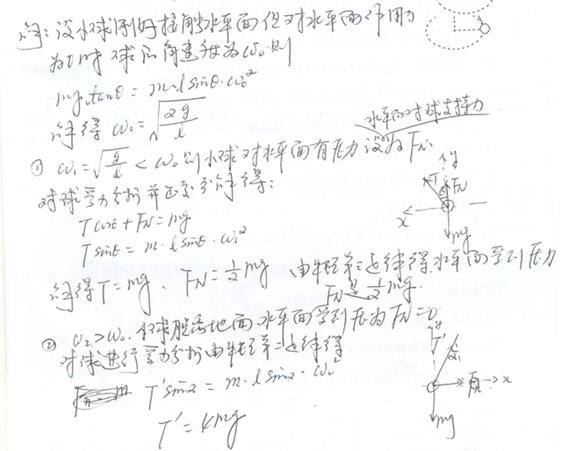 解：设小球刚好接触水平面但对水平面作用力
为0时 球的角速度为ω₀.则
mg.tanθ = m·lsinθ·ω₀²
解得 ω₀ = √(2g/l)
水平面对球支持力
① ω₁=√(g/l) < ω₀ 则小球对水平面有压力 设为 FN.
对球受力分析并正交分解得：
Tcosθ+FN=mg
Tsinθ = m·lsinθ·ω₁²
解得T=mg、FN=½mg 由牛顿第三定律得.水平面受到压力
FN是½mg.
② ω₂>ω₀ 小球脱离地面.水平面受到压力为 FN=0
对球进行受力分析由牛顿第二定律得
T'sinα = m·lsinα·ω₂²
T' = 4mg
y
T
FN
x
mg
y
T'
x
mg